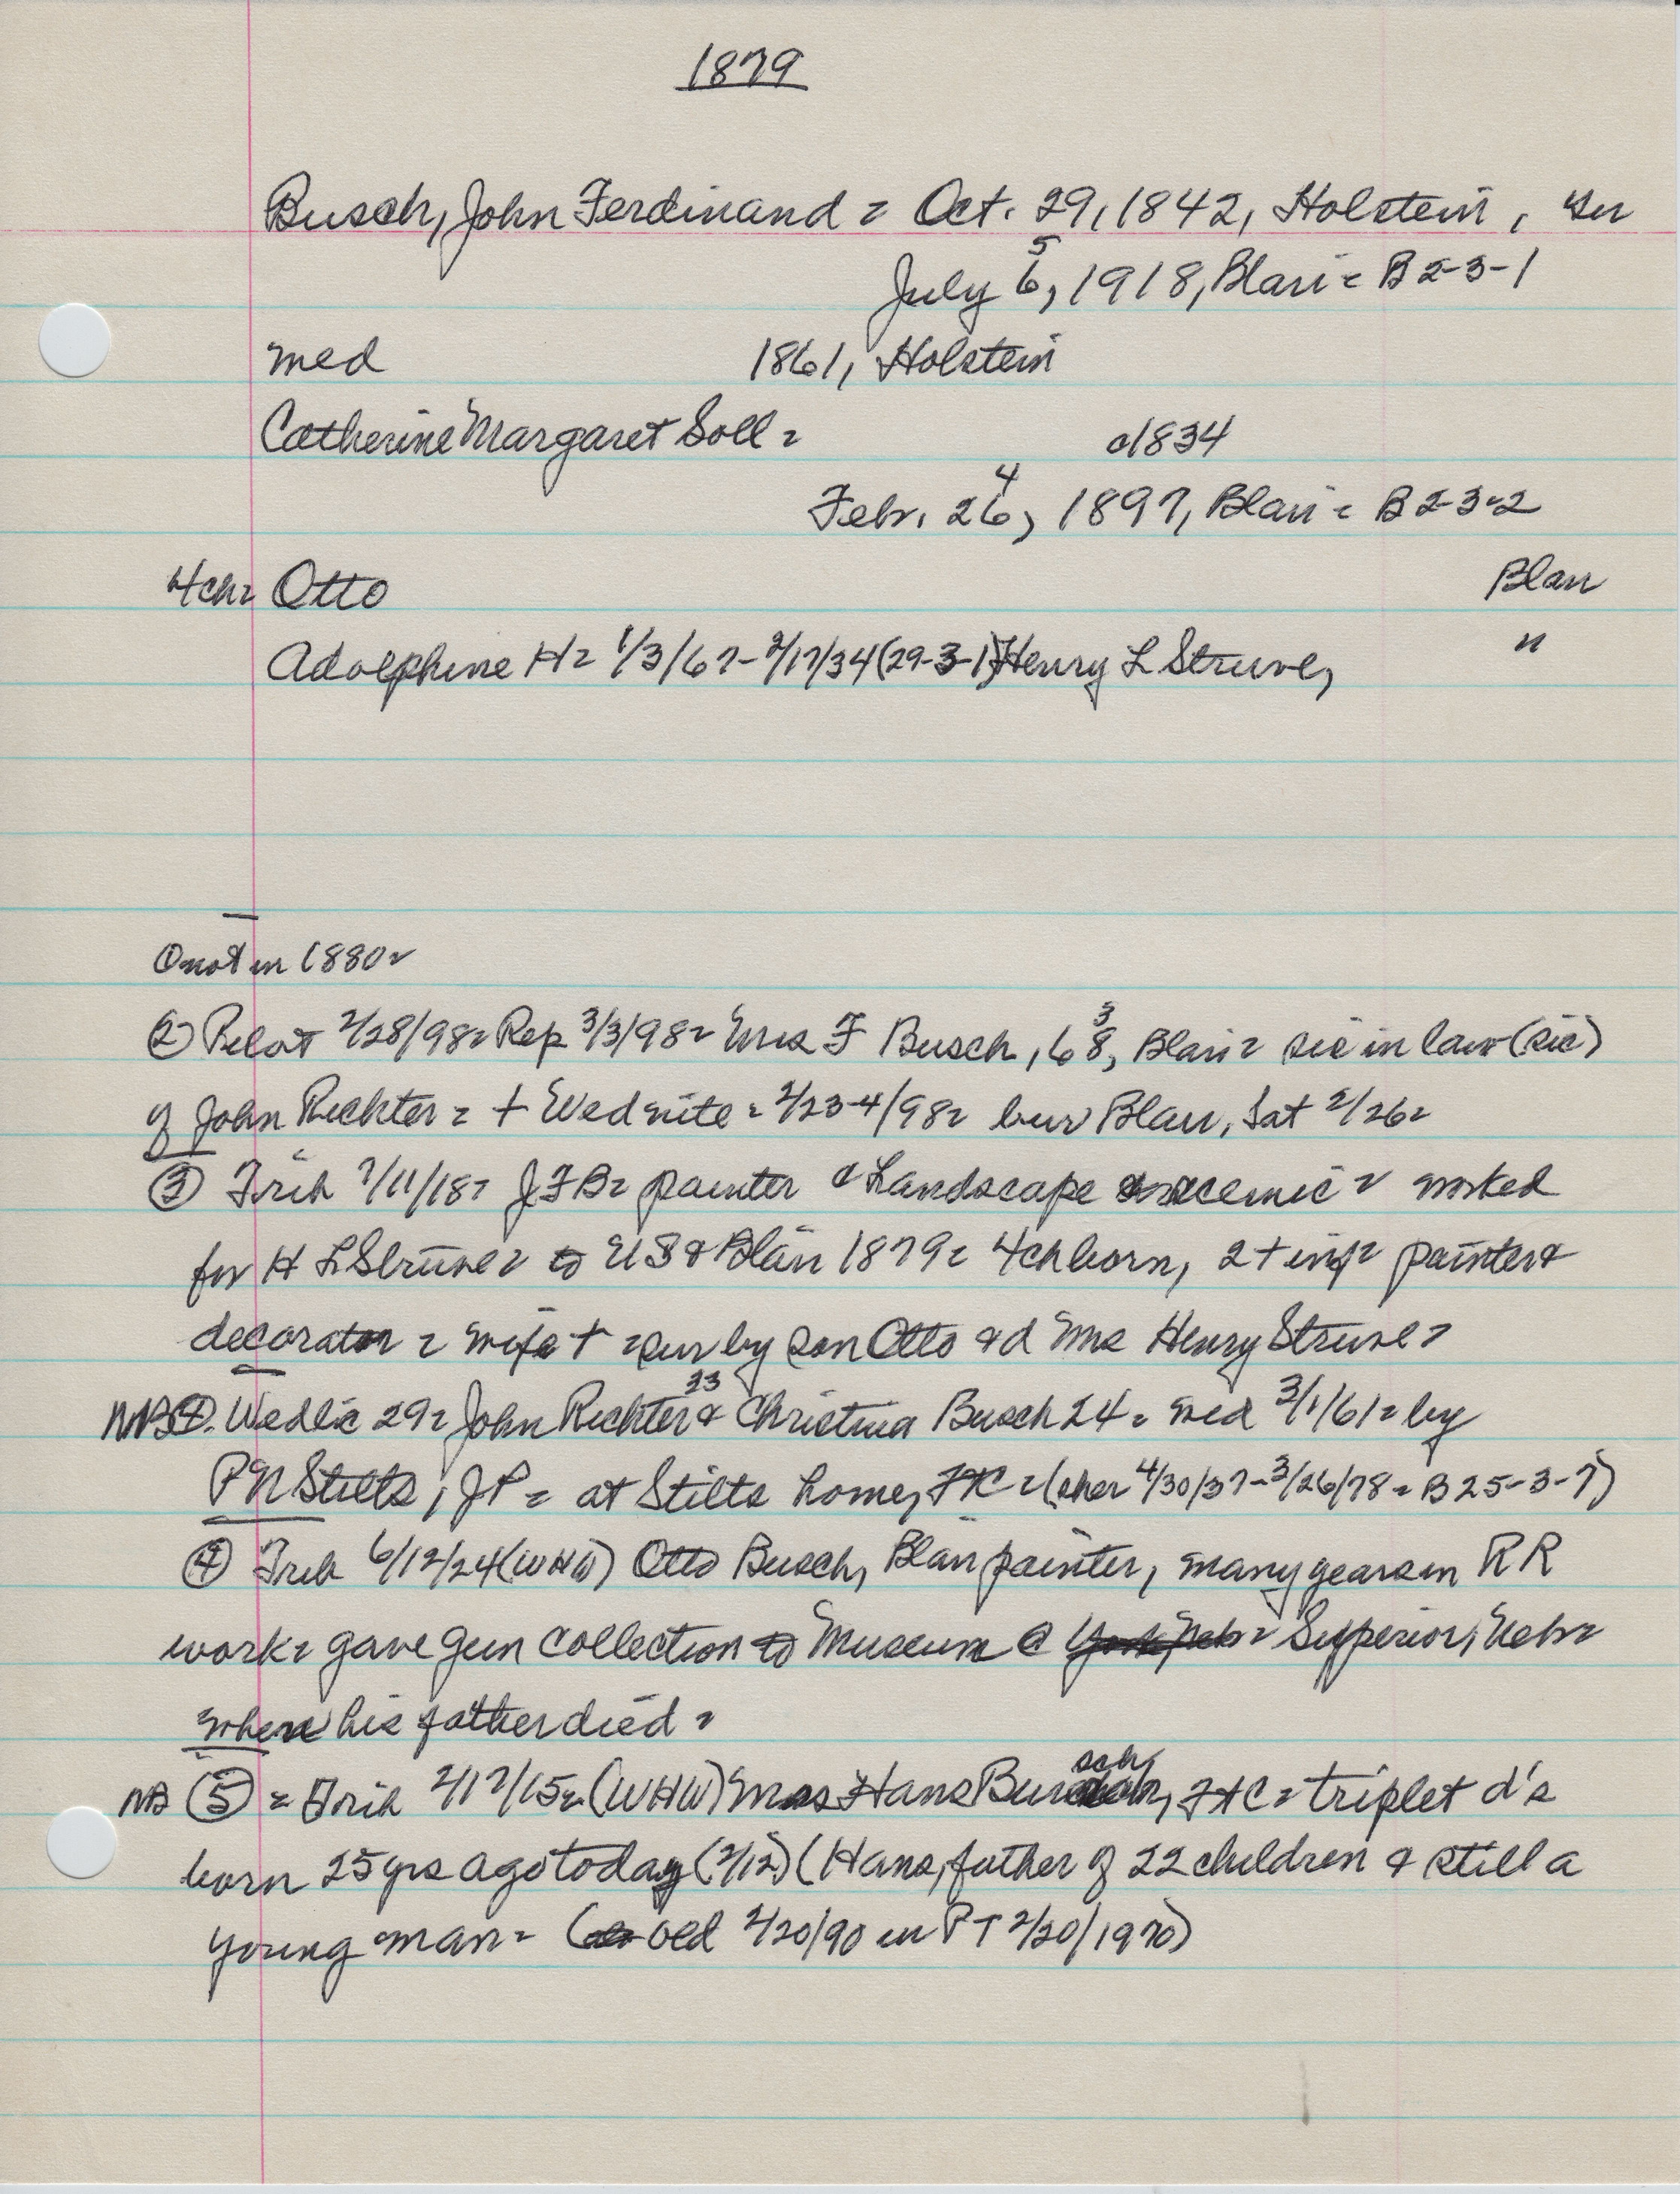 1879
Busch, John Ferdinand = Oct. 29, 1842, Holstein, Ger
5
July 6, 1918, Blair = B 2-3-1
med 1861, Holstein
Catherine Margaret Soll = c1834
4
Febr. 26, 1897, Blair = B 2-3-2
4ch = Otto Blair
Adolphine H = 1/3/67-2/17/34 (29-3-1) Henry L Struve, "
① not in 1880 =
3
② Pilot 2/28/98 = Rep 3/3/98 = Mrs F Busch, 68, Blair = sis in law (sic)
of John Richter = + Wed nite = 2/23-4/98 = bur Blair, Sat 2/26 =
③ Trib 7/11/18 = JFB = painter & Landscape scenic = worked
for H L Struve = to US & Blair 1879 = 4ch born, 2 + inf = painter &
decorator = wife + = sur by son Otto & d Mrs Henry Struve =
23
NB ④. Wedlic 29 = John Richter & Christina Busch 24 = med 3/1/61 = by
P N Stilts, JP = at Stilts home, FtC = (she 4/30/37-3/26/78 = B 25-3-7)
④ Trib 6/12/24 (WHW) Otto Busch, Blair painter, many years in RR
work = gave gun collection to Museum @ York, Neb = Superior, Nebr =
where his father died =
sch
NB ⑤ = Trib 2/12/15 = (WHW) Mrs Hans Busch, FtC = triplet d's
born 25 yrs ago today (2/12) (Hans, father of 22 children & still a
young man = ( old 2/20/90 in PT 2/20/1970)